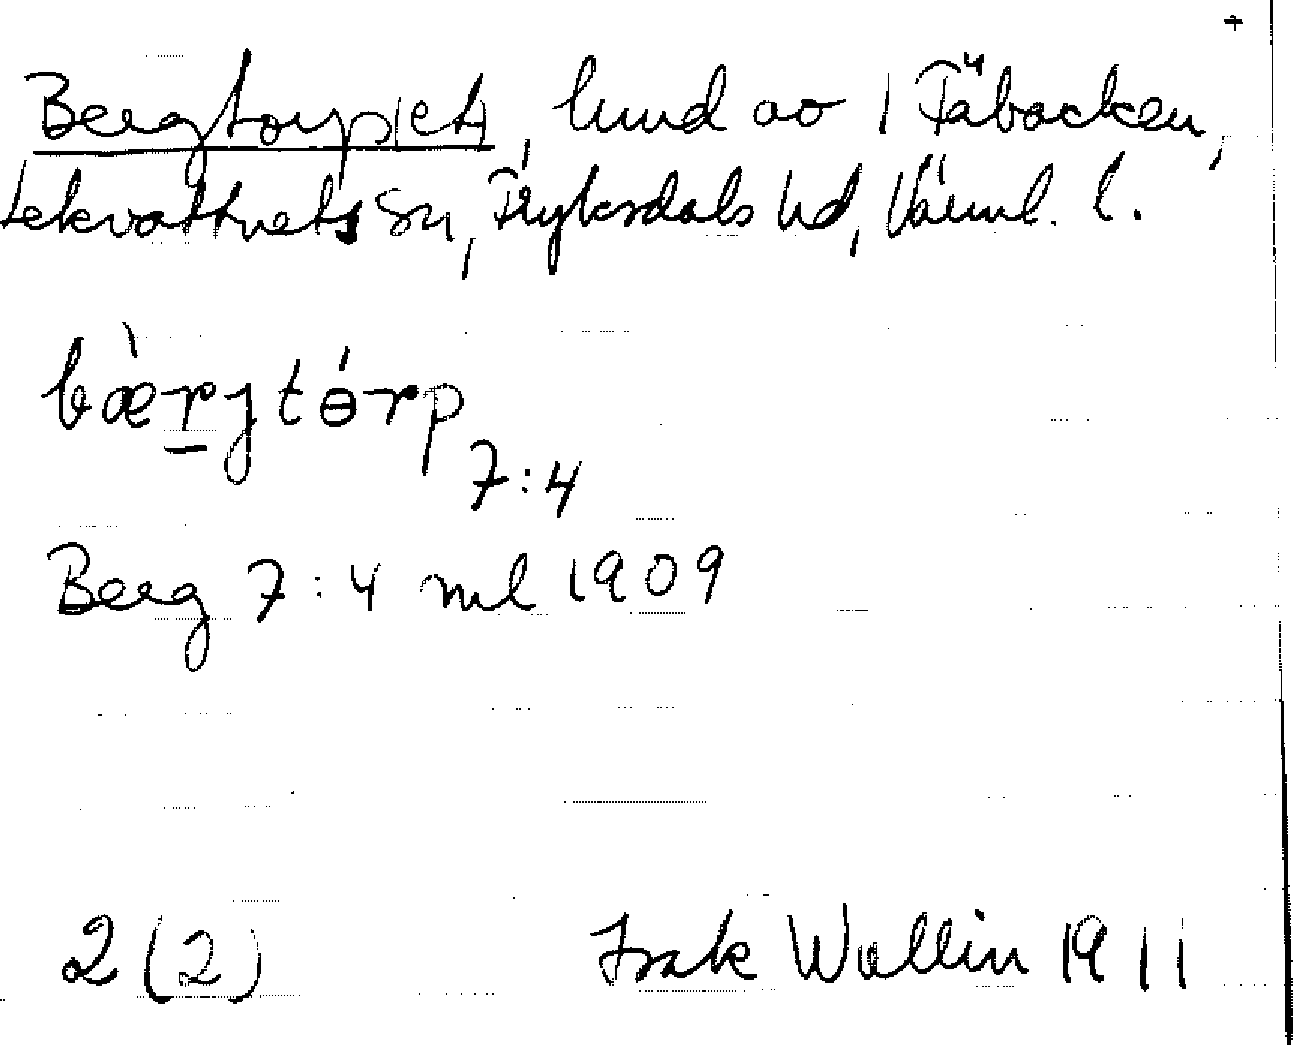 +
Bergtorp|et|, hund ao 1 Fäbacken,
Lekvattnets sn, Fryksdals hd, Värml. l.
bæ̀r̠jtɵ́rp
7:4
Berg 7:4 ml 1909
2 (2) Isak Wallin 1911